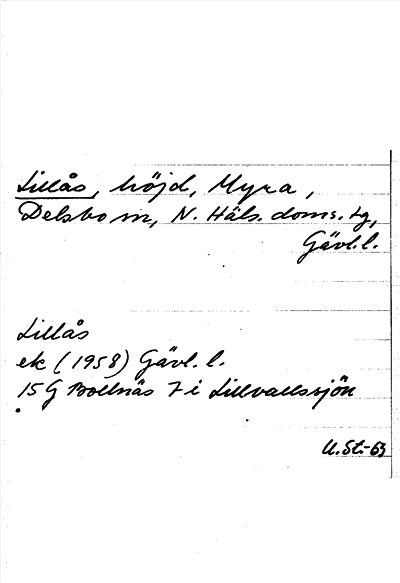 Lillås, höjd, Myra,
Delsbo sn, N. Häls. doms. tg,
Gävl. l.
Lillås
ek (1958) Gävl. l.
15 G Bollnäs 7 i Lillvallssjön
U. St. -63